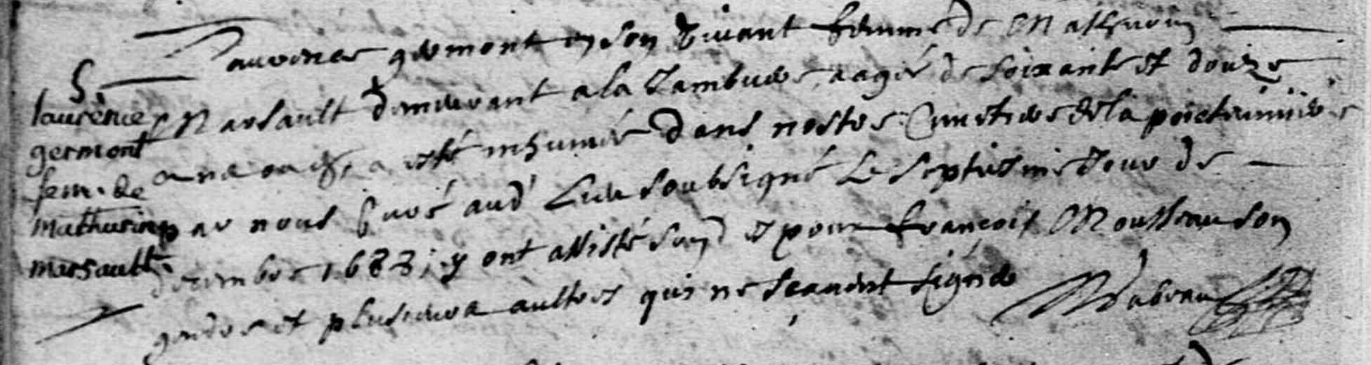 S.
laurence
germont
fem. de
mathurin
marsault
Laurence germont en son vivant femme de Mathurin
Marsault demeurant a la aagée de soixante et douze
ans ou esté inhumée dans nostre Cimetiere de la
par nous Curé aud' Lieu soubsigné Le septiesme Jour de
decembre 1688; y ont assisté et pour françois Mousseau son
gendre et plusieurs aultres qui ne scavent signer